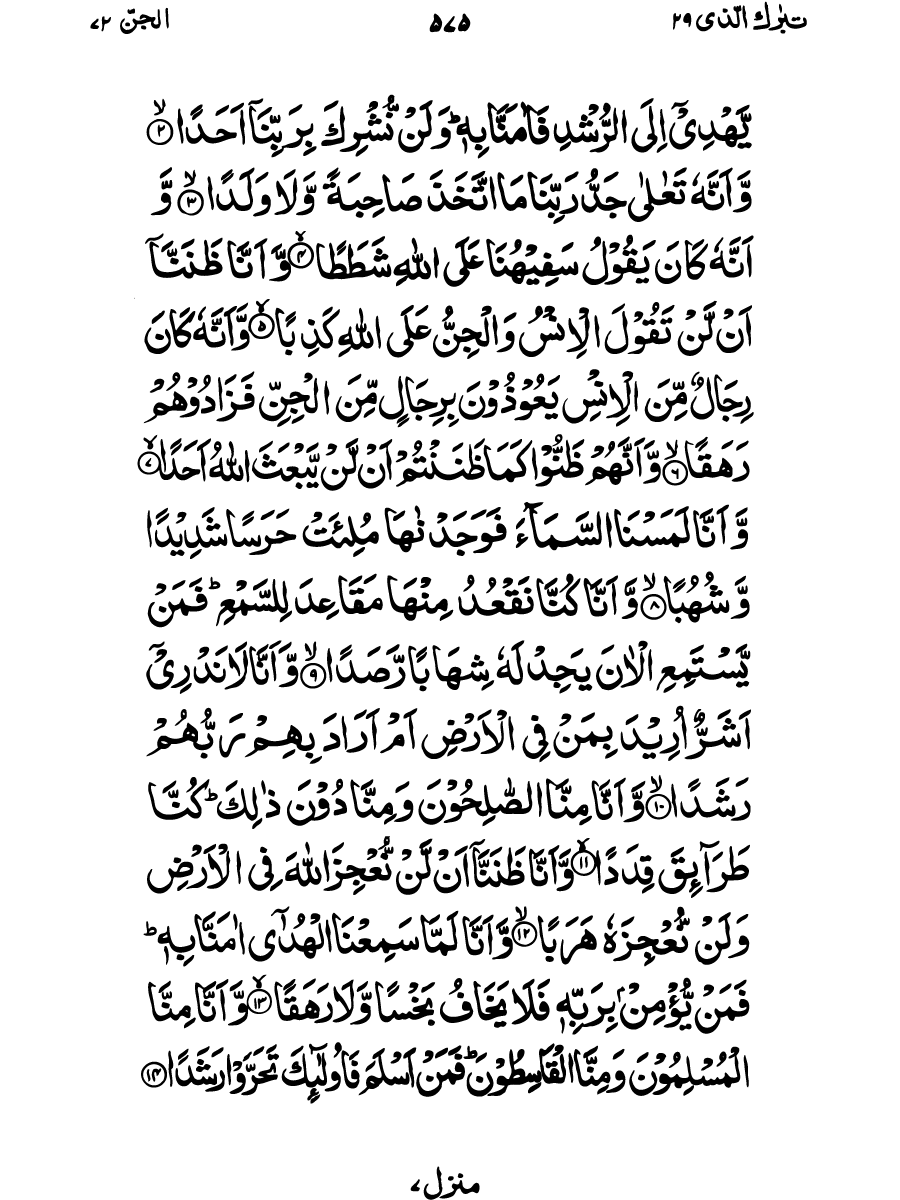 تبٰرك الّذی ۲۹ ۵۷۵ الجنّ ۷۲
يَّهْدِىْۤ اِلَى الرُّشْدِ فَاٰمَنَّا بِهٖ‌ؕ وَلَنْ نُّشْرِكَ بِرَبِّنَاۤ اَحَدًا ۙ‏﴿۲﴾
وَّاَنَّهٗ تَعٰلٰى جَدُّ رَبِّنَا مَا اتَّخَذَ صَاحِبَةً وَّلَا وَلَدًا ۙ‏﴿۳﴾ وَّ
اَنَّهٗ كَانَ يَقُوْلُ سَفِيْهُنَا عَلَى اللّٰهِ شَطَطًا ۙ‏﴿۴﴾ وَّاَنَّا ظَنَنَّاۤ
اَنْ لَّنْ تَقُوْلَ الْاِنْسُ وَالْجِنُّ عَلَى اللّٰهِ كَذِبًا ۙ‏﴿۵﴾ وَّاَنَّهٗ كَانَ
رِجَالٌ مِّنَ الْاِنْسِ يَعُوْذُوْنَ بِرِجَالٍ مِّنَ الْجِنِّ فَزَادُوْهُمْ
رَهَقًا ۙ‏﴿۶﴾ وَّاَنَّهُمْ ظَنُّوْا كَمَا ظَنَنْتُمْ اَنْ لَّنْ يَّبْعَثَ اللّٰهُ اَحَدًا ۙ‏﴿۷﴾
وَّاَنَّا لَمَسْنَا السَّمَآءَ فَوَجَدْنٰهَا مُلِئَتْ حَرَسًا شَدِيْدًا
وَّشُهُبًا ۙ‏﴿۸﴾ وَّاَنَّا كُنَّا نَقْعُدُ مِنْهَا مَقَاعِدَ لِلسَّمْعِ‌ؕ فَمَنْ
يَّسْتَمِعِ الْاٰنَ يَجِدْ لَهٗ شِهَابًا رَّصَدًا ۙ‏﴿۹﴾ وَّاَنَّا لَا نَدْرِىْۤ
اَشَرٌّ اُرِيْدَ بِمَنْ فِى الْاَرْضِ اَمْ اَرَادَ بِهِمْ رَبُّهُمْ
رَشَدًا ۙ‏﴿۱۰﴾ وَّاَنَّا مِنَّا الصّٰلِحُوْنَ وَمِنَّا دُوْنَ ذٰلِكَ‌ؕ كُنَّا
طَرَآئِقَ قِدَدًا ۙ‏﴿۱۱﴾ وَّاَنَّا ظَنَنَّاۤ اَنْ لَّنْ نُّعْجِزَ اللّٰهَ فِى الْاَرْضِ
وَلَنْ نُّعْجِزَهٗ هَرَبًا ۙ‏﴿۱۲﴾ وَّاَنَّا لَمَّا سَمِعْنَا الْهُدٰٓى اٰمَنَّا بِهٖ‌ؕ
فَمَنْ يُّؤْمِنْۢ بِرَبِّهٖ فَلَا يَخَافُ بَخْسًا وَّلَا رَهَقًا ۙ‏﴿۱۳﴾ وَّاَنَّا مِنَّا
الْمُسْلِمُوْنَ وَمِنَّا الْقٰسِطُوْنَ‌ؕ فَمَنْ اَسْلَمَ فَاُولٰٓئِكَ تَحَرَّوْا رَشَدًا ﴿۱۴﴾
منزل ۷